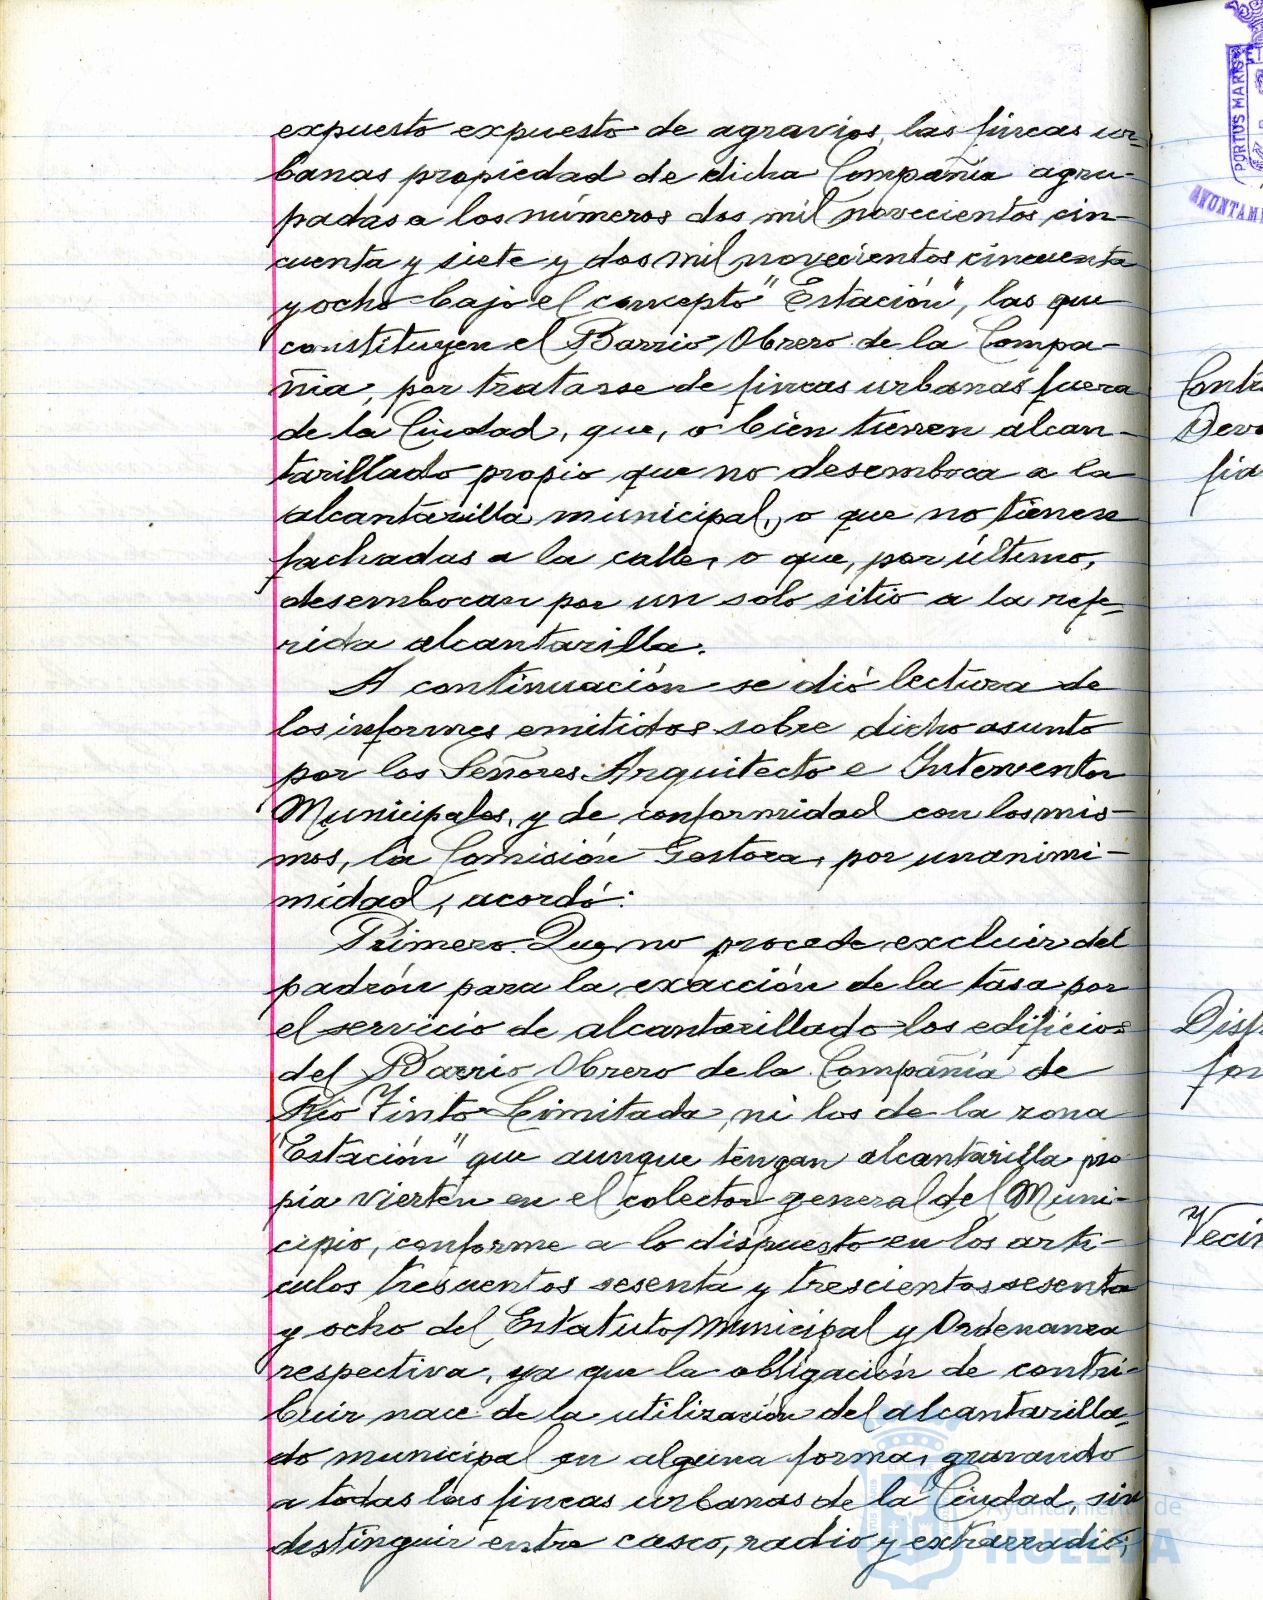 expuesto expuesto de agravios, las fincas ur-
banas propiedad de dicha Compañía agru-
padas a los números dos mil novecientos cin-
cuenta y siete y dos mil novecientos cincuenta
y ocho bajo el concepto "Estación", las que
constituyen el Barrio Obrero de la Compa-
ñia, por tratarse de fincas urbanas fuera
de la Ciudad, que, o bien tienen alcan-
tarillado propio que no desemboca a la
alcantarilla municipal, o que no tienen
fachadas a la calle, o que, por último,
desembocan por un solo sitio a la refe-
rida alcantarilla.
A continuación se dió lectura de
los informes emitidos sobre dicho asunto
por los Señores Arquitecto e Interventor
Municipales, y de conformidad con los mis-
mos, la Comisión Gestora, por unanimi-
midad, acordó:
Primero. Que no procede excluir del
padrón para la exacción de la tasa por
el servicio de alcantarillado los edificios
del Barrio Obrero de la Compañía de
Río Tinto Limitada, ni los de la zona
"Estación" que aunque tengan alcantarilla pro
pia vierten en el colector general del Muni-
cipio, conforme a lo dispuesto en los artí-
culos trescientos sesenta y trescientos sesenta
y ocho del Estatuto Municipal y Ordenanza
respectiva, ya que la obligación de contri-
buir nace de la utilización del alcantarilla-
do municipal en alguna forma, gravando
a todas las fincas urbanas de la Ciudad, sin
destinguir entre casco, radio y extrarradio;
PORTUS MARIS
AYUNTAMI
Contri
Devo
fia
Disp
for
Vecin
Ayuntamiento de
HUELVA